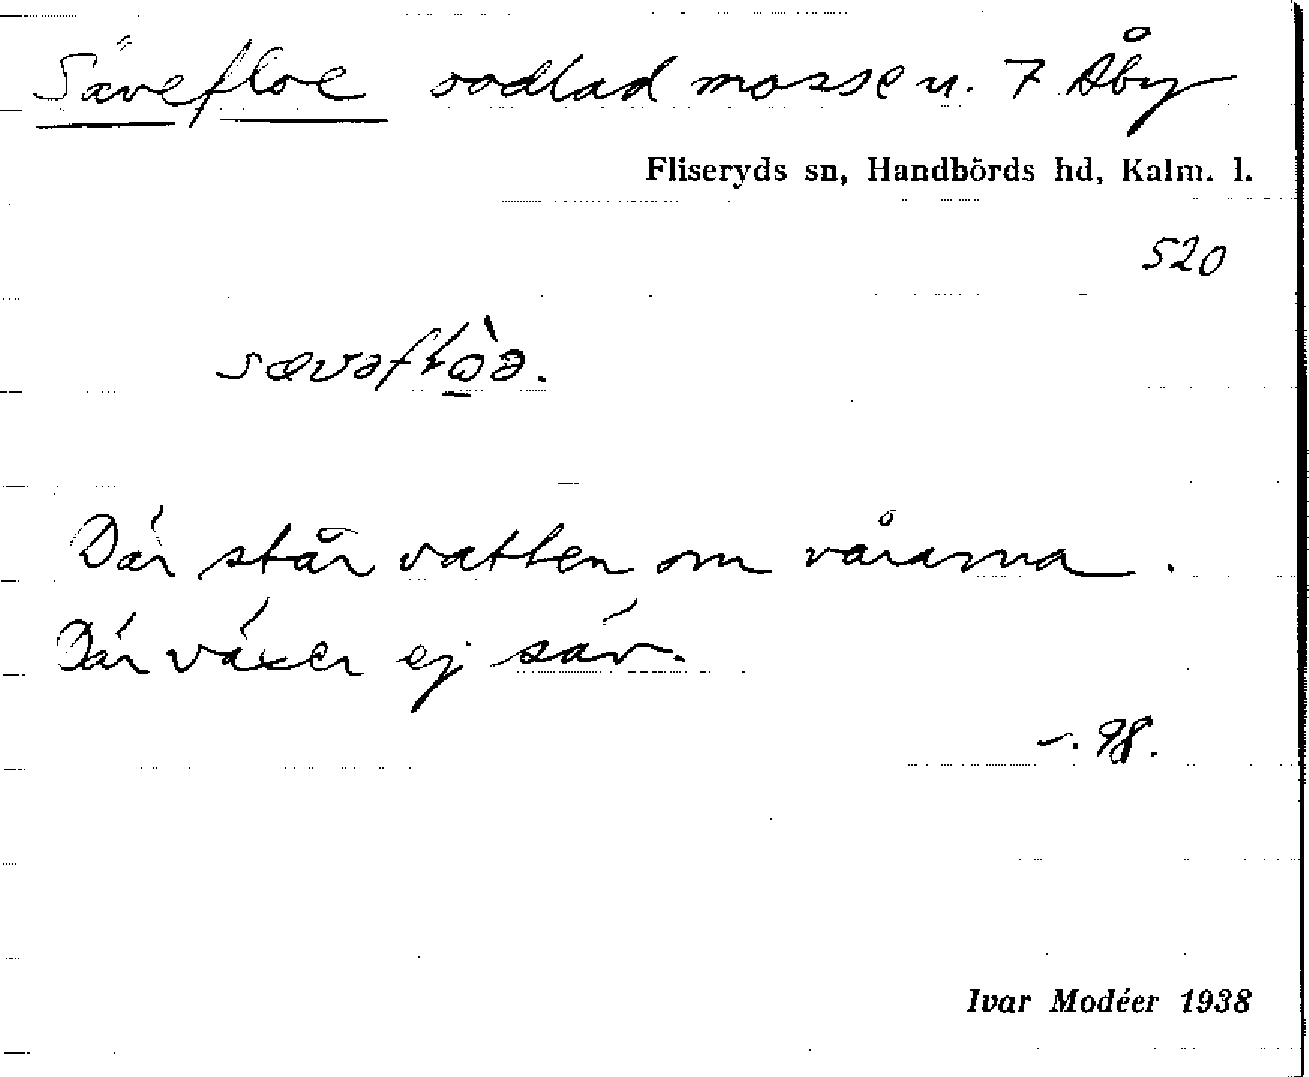 Sävefloe oodlad mosse u. 7 Åby
Fliseryds sn, Handbörds hd, Kalm. l.
520
sævəflòə.
Där står vatten om vårarna.
Där växer ej säv.
–. 98.
Ivar Modéer 1938